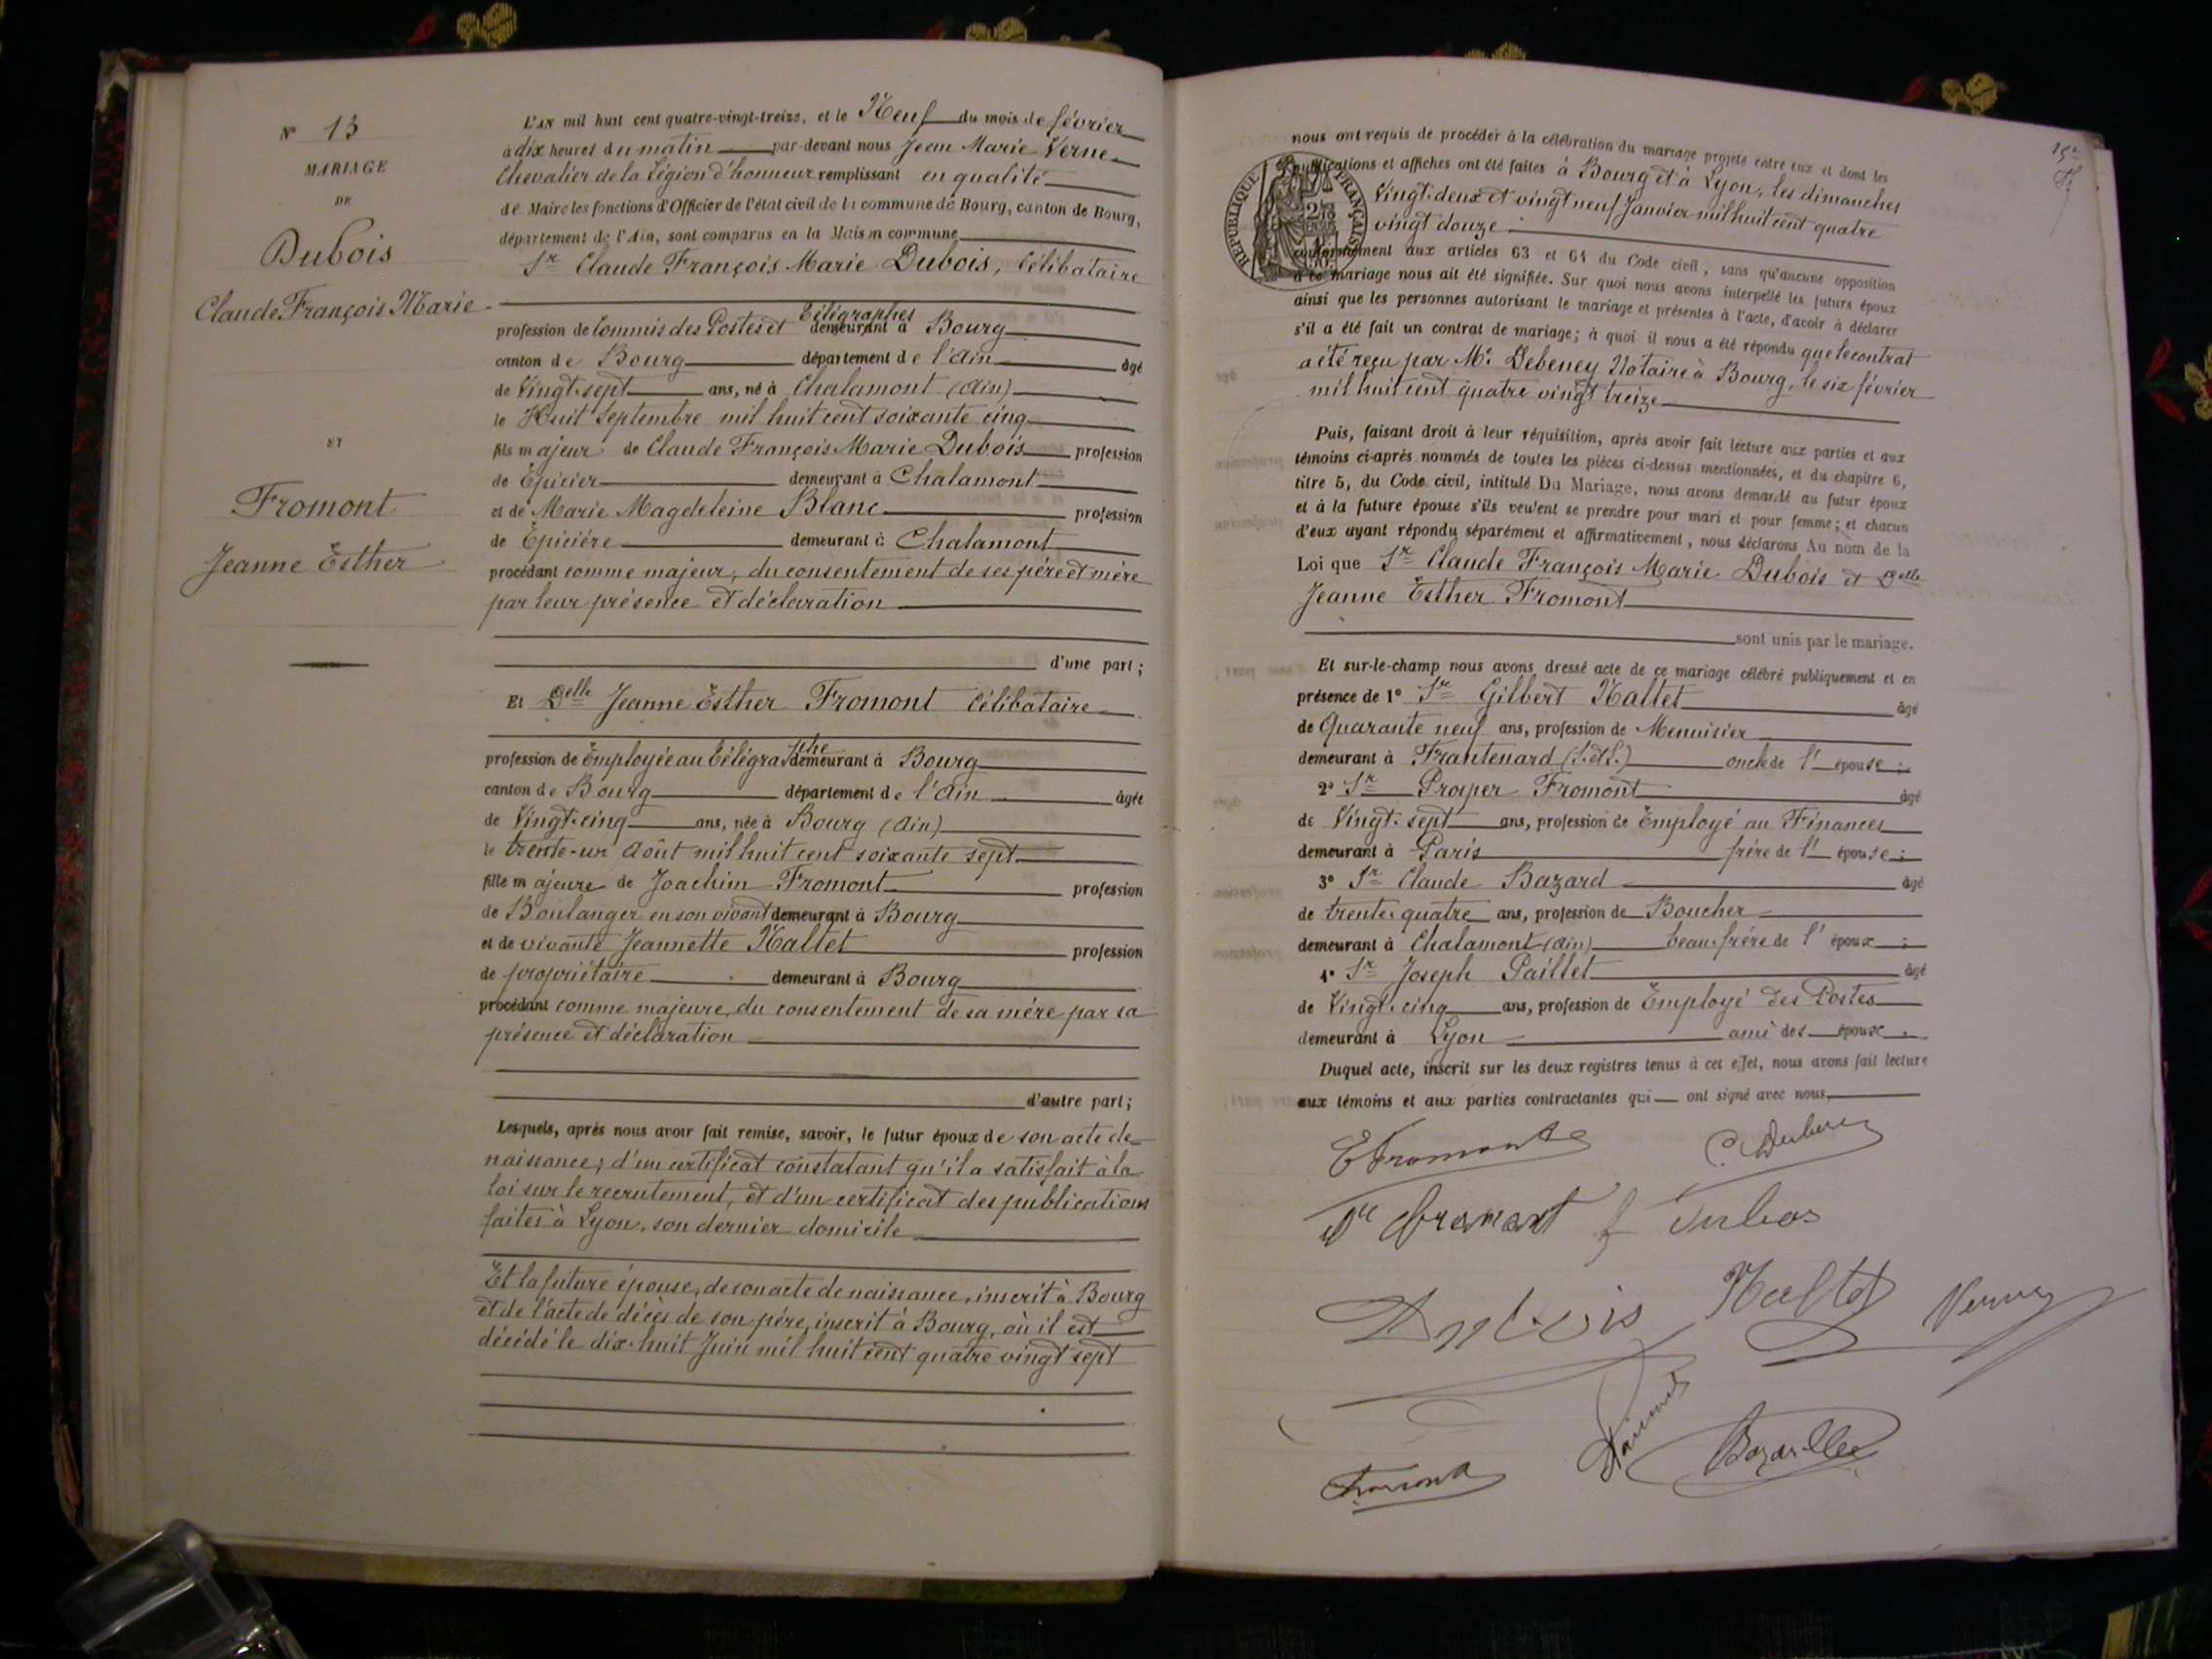 N° 13
MARIAGE
DE
Dubois
Claude François Marie
ET
Fromont
Jeanne Esther
L'AN mil huit cent quatre-vingt-treize, et le Neuf du mois de février
à dix heures du matin par-devant nous Jean Marie Verne
Chevalier de la Légion d'honneur remplissant en qualité
de Maire les fonctions d'Officier de l'état civil de la commune de Bourg, canton de Bourg,
département de l'Ain, sont comparus en la Maison commune
Sr Claude François Marie Dubois, Célibataire
profession de Commis des Postes et Télégraphes demeurant à Bourg
canton de Bourg département de l'Ain âgé
de Vingt-sept ans, né à Chalamont (Ain)
le Huit Septembre mil huit cent soixante cinq
fils majeur de Claude François Marie Dubois profession
de Epicier demeurant à Chalamont
et de Marie Magdeleine Blanc profession
de Epicière demeurant à Chalamont
procédant comme majeur, du consentement de ses père et mère
par leur présence et déclaration
d'une part;
Et Delle Jeanne Esther Fromont Célibataire
profession de Employée au Télégraphe demeurant à Bourg
canton de Bourg département de l'Ain âgée
de Vingt-cinq ans, née à Bourg (Ain)
le trente-un Août mil huit cent soixante sept
fille majeure de Joachim Fromont profession
de Boulanger en son vivant demeurant à Bourg
et de vivante Jeannette Naltet profession
de propriétaire demeurant à Bourg
procédant comme majeure, du consentement de sa mère par sa
présence et déclaration
d'autre part;
Lesquels, après nous avoir fait remise, savoir, le futur époux de son acte de
naissance; d'un certificat constatant qu'il a satisfait à la
loi sur le recrutement, et d'un certificat des publications
faites à Lyon, son dernier domicile
Et la future épouse, de son acte de naissance, inscrit à Bourg
et de l'acte de décès de son père, inscrit à Bourg, où il est
décédé le dix-huit Juin mil huit cent quatre vingt sept
nous ont requis de procéder à la célébration du mariage projeté entre eux et dont les
publications et affiches ont été faites à Bourg et à Lyon, les dimanches
Vingt-deux et vingt neuf Janvier mil huit cent quatre
vingt douze
RÉPUBLIQUE FRANÇAISE
conformément aux articles 63 et 64 du Code civil, sans qu'aucune opposition
à ce mariage nous ait été signifiée. Sur quoi nous avons interpellé les futurs époux
ainsi que les personnes autorisant le mariage et présentes à l'acte, d'avoir à déclarer
s'il a été fait un contrat de mariage; à quoi il nous a été répondu que le contrat
a été reçu par Me Debeney Notaire à Bourg, le six février
mil huit cent quatre vingt treize
Puis, faisant droit à leur réquisition, après avoir fait lecture aux parties et aux
témoins ci-après nommés de toutes les pièces ci-dessus mentionnées, et du chapitre 6,
titre 5, du Code civil, intitulé Du Mariage, nous avons demandé au futur époux
et à la future épouse s'ils veulent se prendre pour mari et pour femme; et chacun
d'eux ayant répondu séparément et affirmativement, nous déclarons Au nom de la
Loi que Sr Claude François Marie Dubois et Delle
Jeanne Esther Fromont
sont unis par le mariage.
Et sur-le-champ nous avons dressé acte de ce mariage célébré publiquement et en
présence de 1° Sr Gilbert Naltet âgé
de Quarante neuf ans, profession de Menuisier
demeurant à Frantenard (S.et L.) oncle de l'épouse;
2° Sr Prosper Fromont âgé
de Vingt-sept ans, profession de Employé au Finances
demeurant à Paris frère de l'épouse;
3° Sr Claude Bazard âgé
de trente-quatre ans, profession de Boucher
demeurant à Chalamont (Ain) beau-frère de l'époux;
4° Sr Joseph Paillet âgé
de Vingt-cinq ans, profession de Employé des Postes
demeurant à Lyon ami des époux.
Duquel acte, inscrit sur les deux registres tenus à cet effet, nous avons fait lecture
aux témoins et aux parties contractantes qui ont signé avec nous
E Fromont C. Dubois
Ve Fromont f Dubos
Dubois Naltet Verne
Fromont